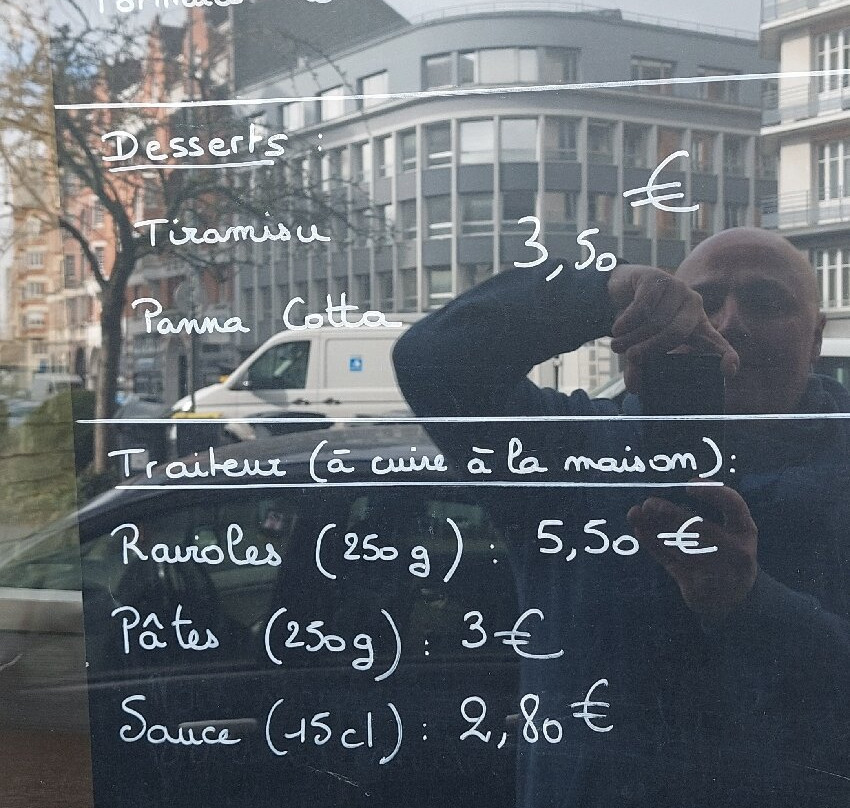 Desserts :
Tiramisu
3,50 €
Panna Cotta
Traiteur (à cuire à la maison) :
Ravioles (250 g) : 5,50 €
Pâtes (250g) : 3 €
Sauce (15 cl) : 2,80 €